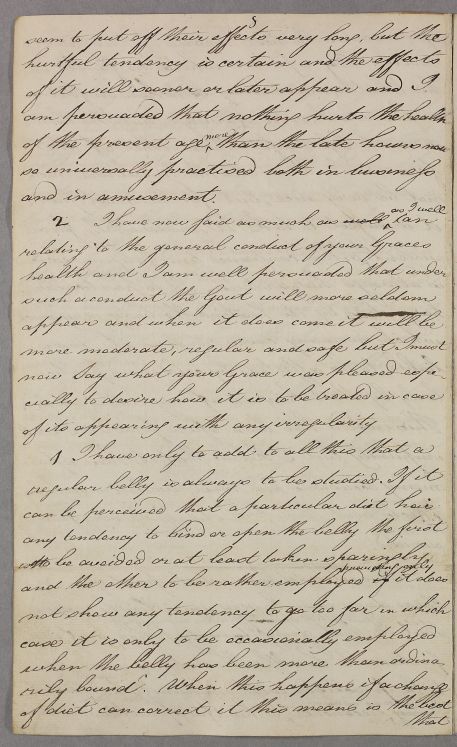 5
seem to put off their effects very long, but the
hurtful tendency is certain and the effects
of it will sooner or later appear and I
am persuaded that nothing hurts the health
of the present age more than the late hours now
so universally practised both in business
and in amusement.
2 I have now said as much as well as I well can
relating to the general conduct of your Graces
health and I am well persuaded that under
such a conduct the Gout will more seldom
appear and when it does come it will be
more moderate, regular and safe but I must
now say what your Grace was pleased espe-
cially to desire how it is to be treated in case
of its appearing with any irregularity
1 I have only to add to all this that a
regular belly is always to be studied. If it
can be perceived that a particular diet has
any tendency to bind or open the belly the first
to be avoided or at least taken sparingly
and the other to be rather employed providing only if it does
not show any tendency to go too far in which
case it is only to be occasionally employed
when the belly has been more than ordina
rily bound. When this happens if a change
of diet can correct it this means is the best
that